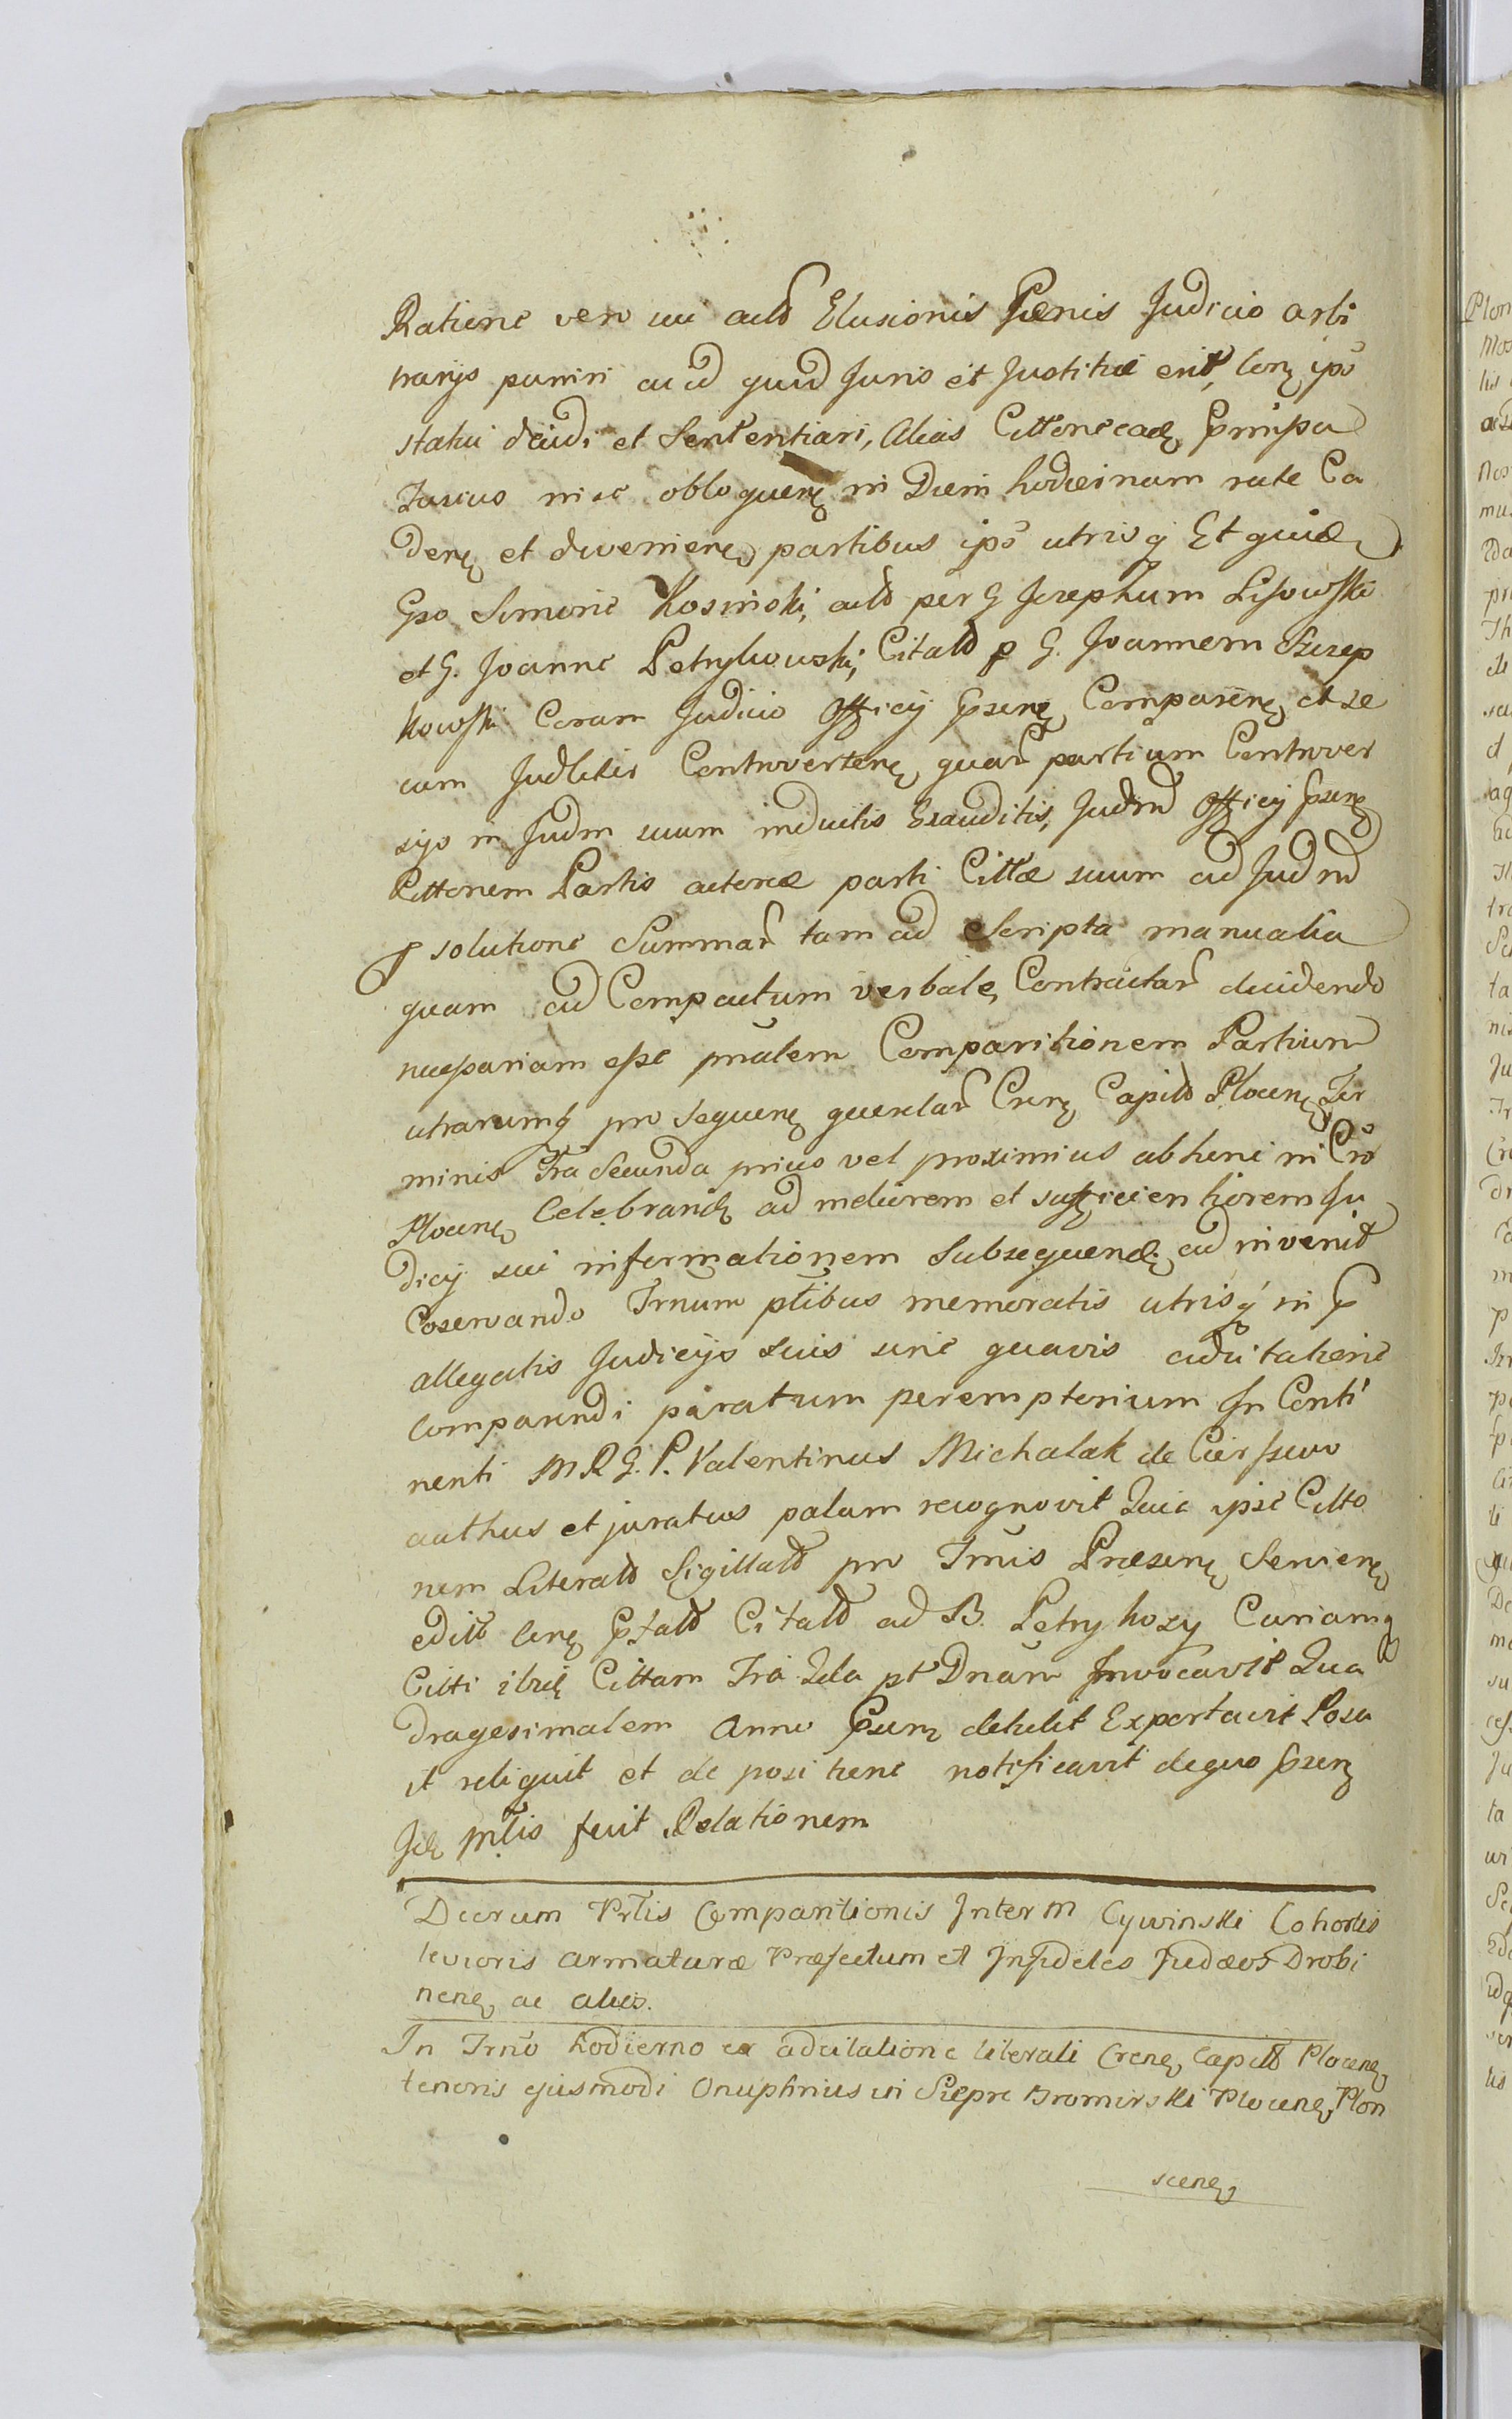 Ratione vero sui actd Elusionis Pœnis Judicio arbi
trarijs puniri ac id quid Juris et Justitiæ erit, corz ips
statui decidi et sententiari, Alias Cittone eadz
in se obloquenz in Diem hodiernam rite Ca
denz et devenienz partibus ips utrisq Et quidz
Gso Simone Kosinski, actd per G Josephum Lisowski
et G. Joanne Petrykowski, Citatd p G. Joannem Szczep
kowski Coram Judicio Officij psenz Comparenz et se
cum Judlitir Controvertenz quar partium Controver
sijs in Judm suum inductis Exauditis, Judmd Officij psenz
Cittonem Partis actoreæ parti Cittæ suum ad Judmd
p solutione Summar tam ad Scripta manualia
quam ad Compactum verbale, Contractar decidendo
necessariam esse pnalem Comparitionem Partium
utrarumq pro sequenz querelar Crenz Capitd Plocenz Ter
minis Fra Secunda prius vel proximius ab hinc in Cro
Plocenz Celebrandz ad meliorem et sufficientiorem Ju
dicij sui informationem Subsequendz ad invenit
Coservando Trnum ptibus memoratis utrisq in p
allegatis Judicijs suis sine quavis adcitatione
comparendi paratum peremptorium In Conti
nenti MRG. P. Valentinus Michalak de Cierszewo
authus et juratus palam recognovit Quia ipse Citto
nem Literatd Sigillatd pro Trnis Præsenz Servienz
editd conz psatd Citatd ad B. Petrykozy Curiamq
Citti ibidz Cittam Fra 2da pt Dnam Invocavit Qua
dragesimalem Anno psenz detulit Exportavit Posu
it reliquit et de positione notificavit de quo psenz
Jdz mtlis fecit Relationem
Decrum Prlis Comparitionis Inter M Cywinski Cohortis
levioris armaturæ Præfectum et Infideles Judæos Drobi
nenz ac alios.
In Trno hodierno ex adcitatione literali Crenz Capitd Plocenz
tenoris ejusmodi Onuphrius in Siepre Bromirski Plocenz Plon
scenz